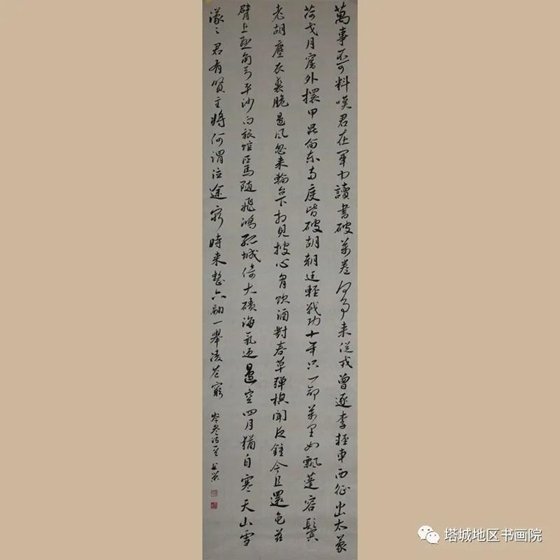 萬事不可料嘆君在軍中讀書破萬卷何事来從戎曾逐李輕車西征出太蒙
荷戈月窟外擐甲昆侖東兩度皆破胡朝廷輕戰功十年只一命萬里如飄蓬容鬢
老胡塵衣裘脆邊風忽来輪臺下相見披心胸飲酒對春草彈棋聞夜鐘今且還龜茲
臂上懸角弓平沙向旅館匹馬隨飛鴻孤城倚大磧海氣迎邊空四月猶自寒天山雪
濛々君有賢主將何謂泣途窮時来整六翮一舉凌蒼穹 岑參詩一首
塔城地区书画院